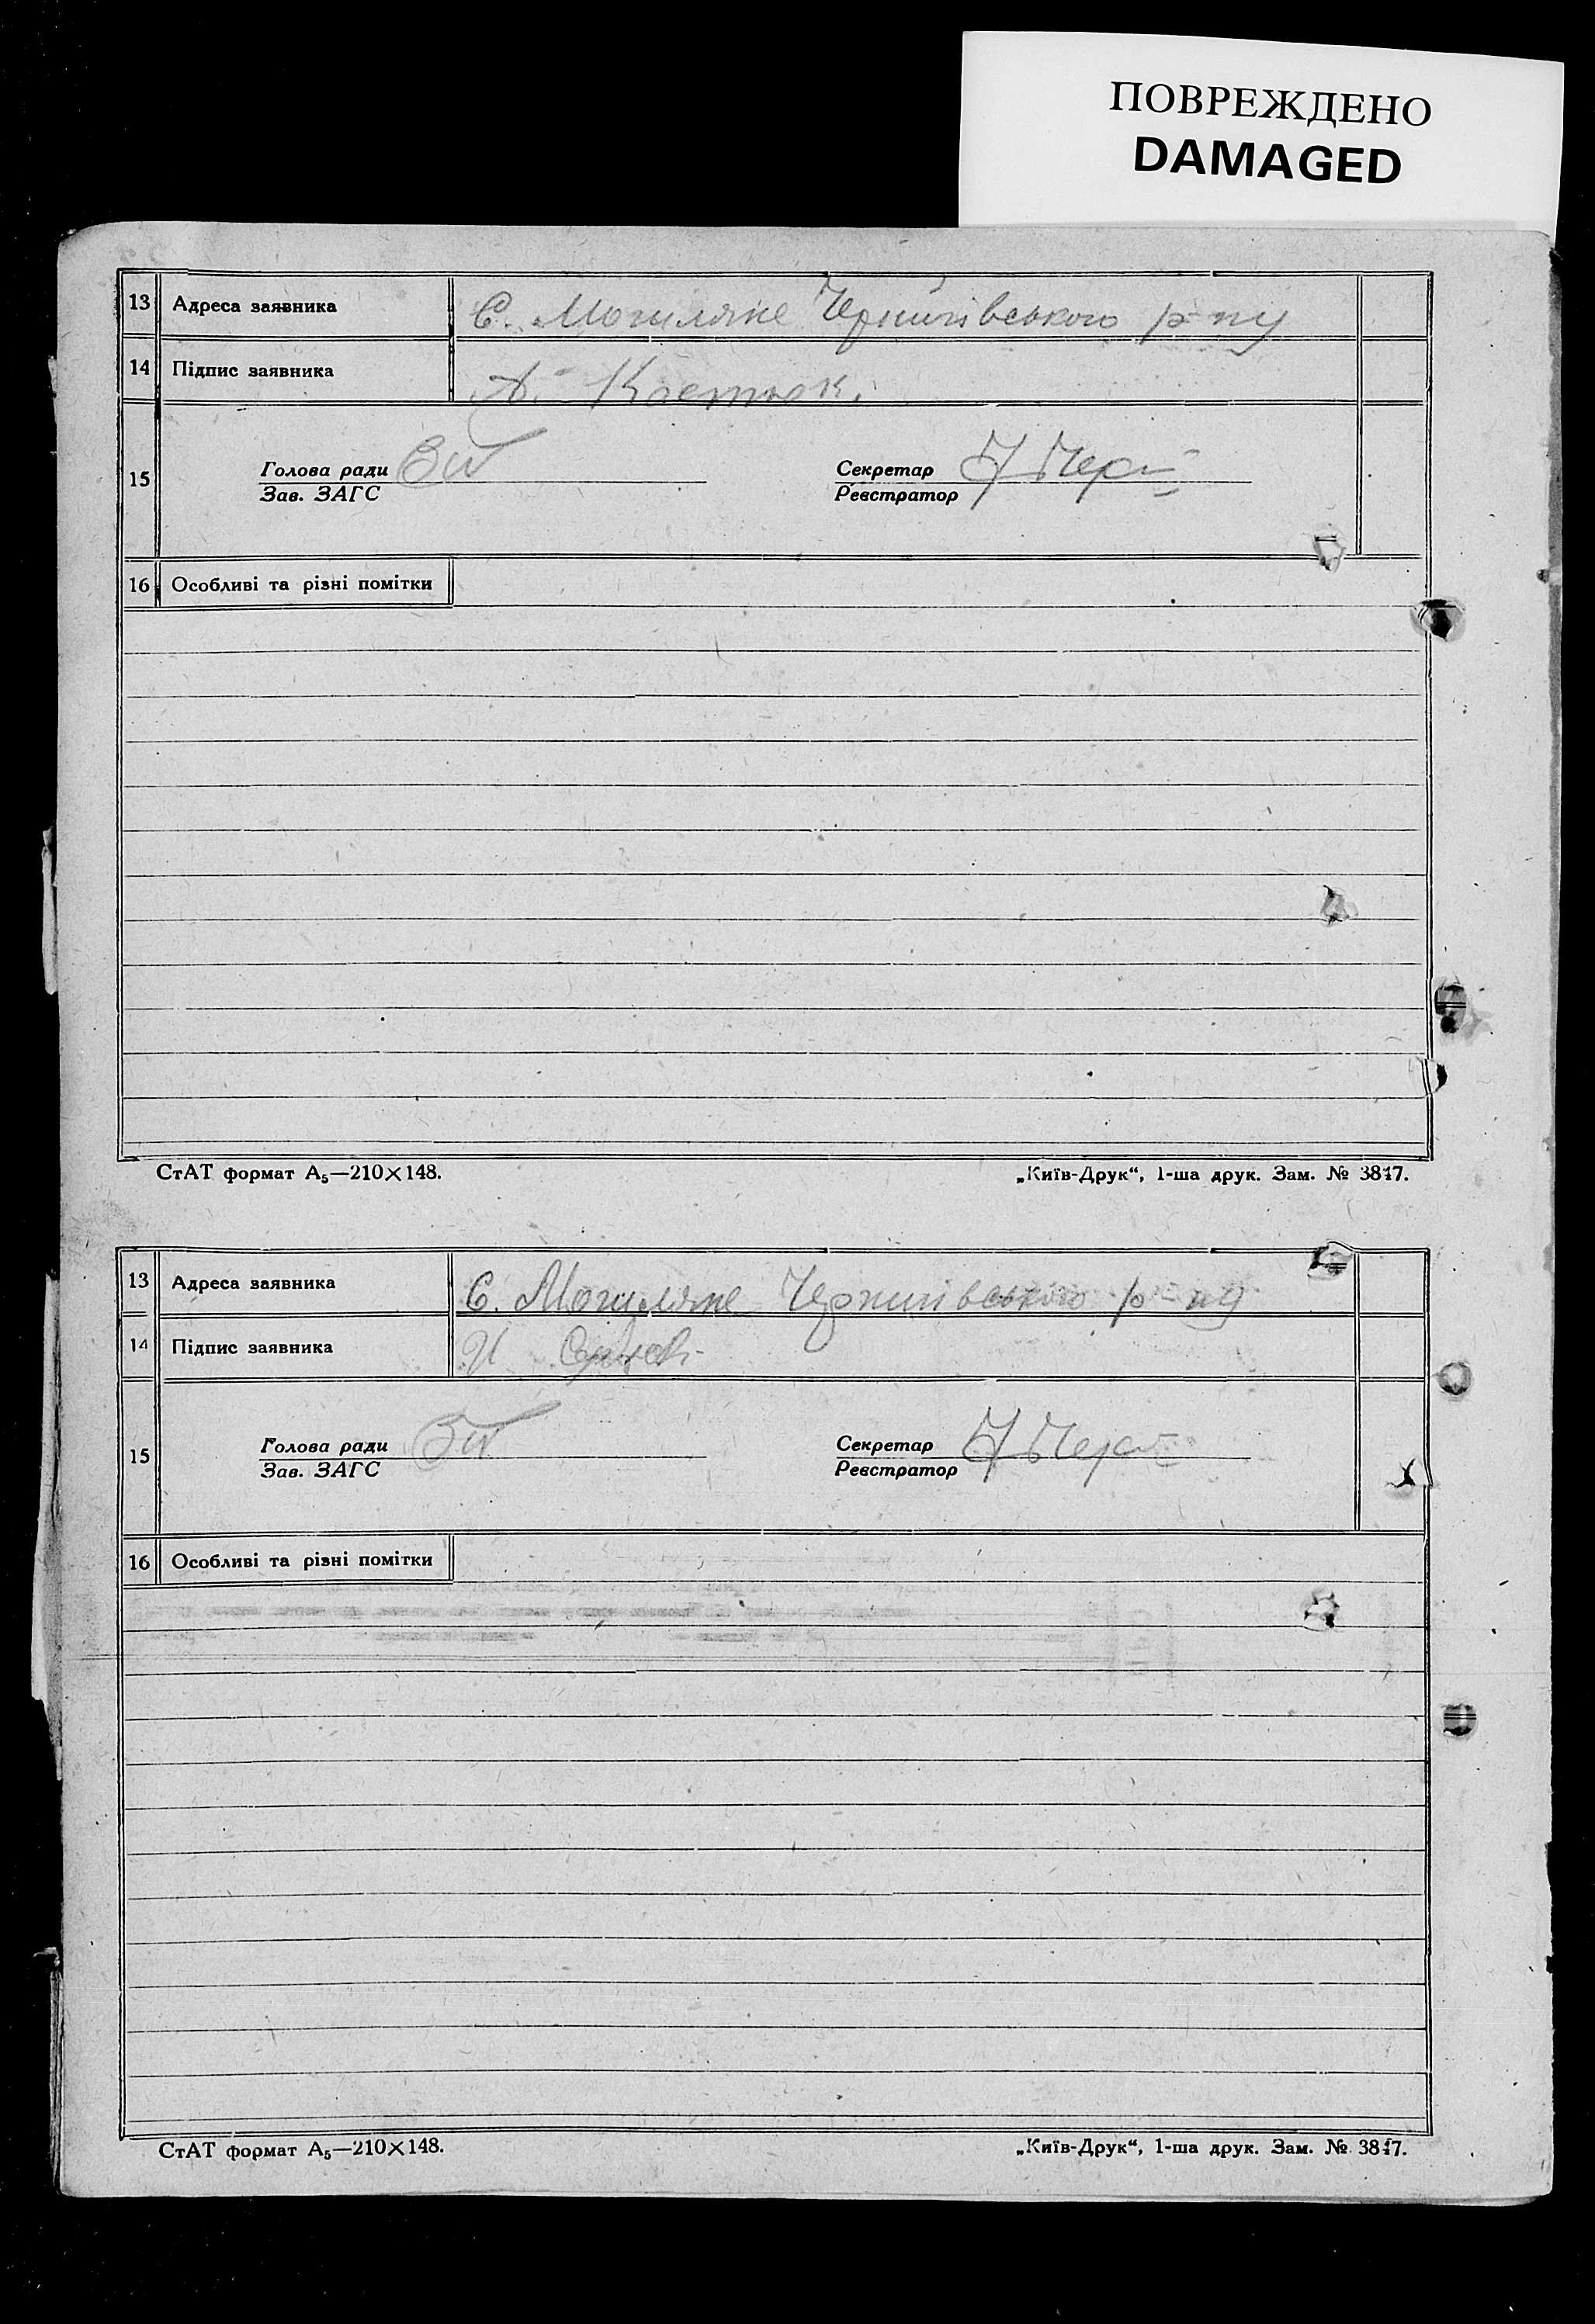 ПОВРЕЖДЕНО
DAMAGED
13 Адреса заявника С. Могиляне Чернигівського р-ну
14 Підпис заявника А. Костюк.
15 Голова ради Секретар
Зав. ЗАГС Реєстратор
16 Особливі та різні помітки
СтАТ формат А₅—210×148. „Київ-Друк“, 1-ша друк. Зам. № 3817.
13 Адреса заявника С. Могиляне Чернигівського р-ну
14 Підпис заявника
15 Голова ради Секретар
Зав. ЗАГС Реєстратор
16 Особливі та різні помітки
СтАТ формат А₅—210×148. „Київ-Друк“, 1-ша друк. Зам. № 3817.